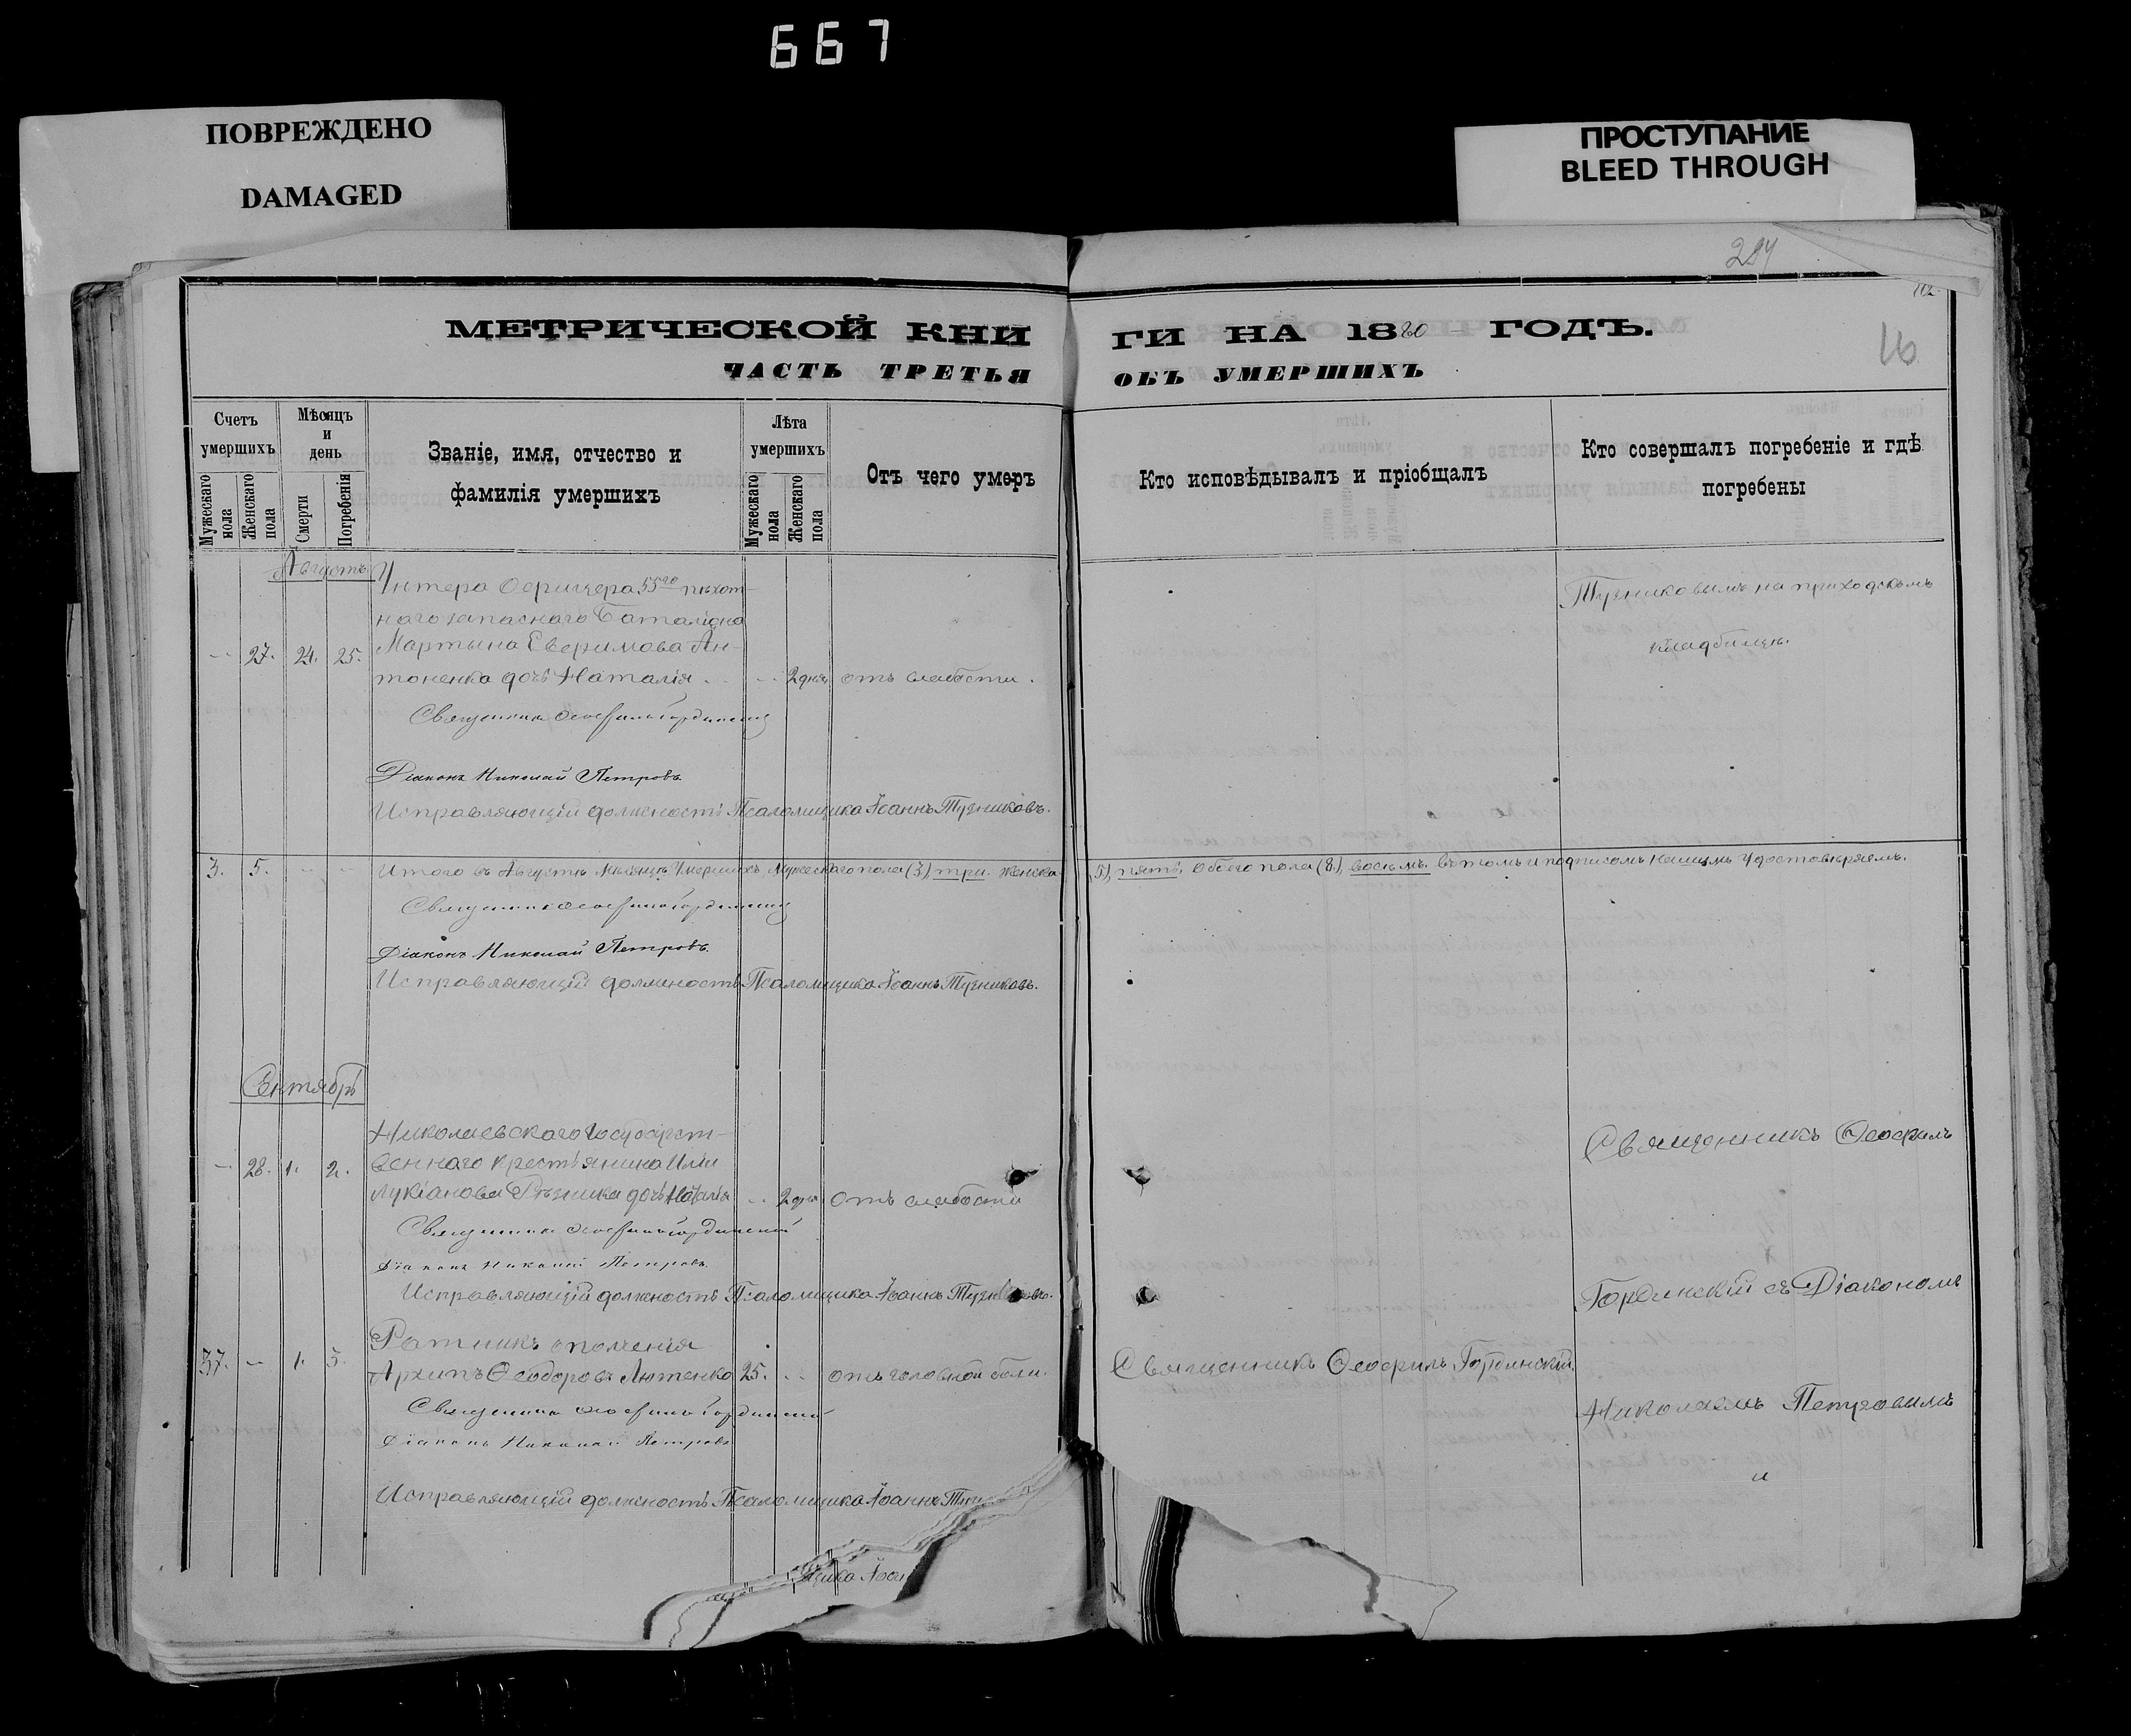 667
ПОВРЕЖДЕНО
DAMAGED
ПРОСТУПАНИЕ
BLEED THROUGH
112
16
МЕТРИЧЕСКОЙ КНИГИ НА 1880 ГОДЪ.
ЧАСТЬ ТРЕТЬЯ ОБЪ УМЕРШИХЪ
Счетъ умершихъ
Мужескаго пола
Женскаго пола
Мѣсяцъ и день
Смерти
Погребенія
Званіе, имя, отчество и фамилія умершихъ
Лѣта умершихъ
Мужескаго пола
Женскаго пола
Отъ чего умеръ
Кто исповѣдывалъ и пріобщалъ
Кто совершалъ погребеніе и гдѣ погребены
Августъ
Унтера Офицера 55го пѣхот-
наго запаснаго Баталіона
27. 24. 25. Мартына Евфимова Ан-
тоненка дочь Наталія 2 дня отъ слабости.
Тузниковымъ на приходскомъ
кладбищѣ.
Священникъ Ѳеофилъ Гординскій
Діаконъ Николай Петровъ
Исправляющій должность Псаломщика Іоаннъ Тузниковъ.
3. 5. Итого въ Августѣ мѣсяцѣ Умершихъ Мужескаго пола (3) три. Женска 5) пять, обоего пола (8) восемь. въ томъ и подписомъ нашимъ удостовѣряемъ.
Священникъ Ѳеофилъ Гординскій
Діаконъ Николай Петровъ.
Исправляющій должность Псаломщика Іоаннъ Тузниковъ.
Сентябрь
Николаевскаго Государст-
28. 1. 2. веннаго крестьянина Иліи
Лукіанова Рѣзника дочь Наталія 2 дня отъ слабости
Священникъ Ѳеофилъ Гординскій
Діаконъ Николай Петровъ
Исправляющій должность Псаломщика Іоаннъ
Ратникъ ополченія
37. 1. 3. Архипъ Ѳеодоровъ Лютенко 25. отъ головной боли.
Священникъ Ѳеофилъ Гординскій.
Священникъ Ѳеофилъ Гординскій
Діаконъ Николай Петровъ
Исправляющій должность Псаломщика Іоаннъ
Священникъ Ѳеофилъ
Гординскій съ Діакономъ
Николаемъ Петровымъ
и